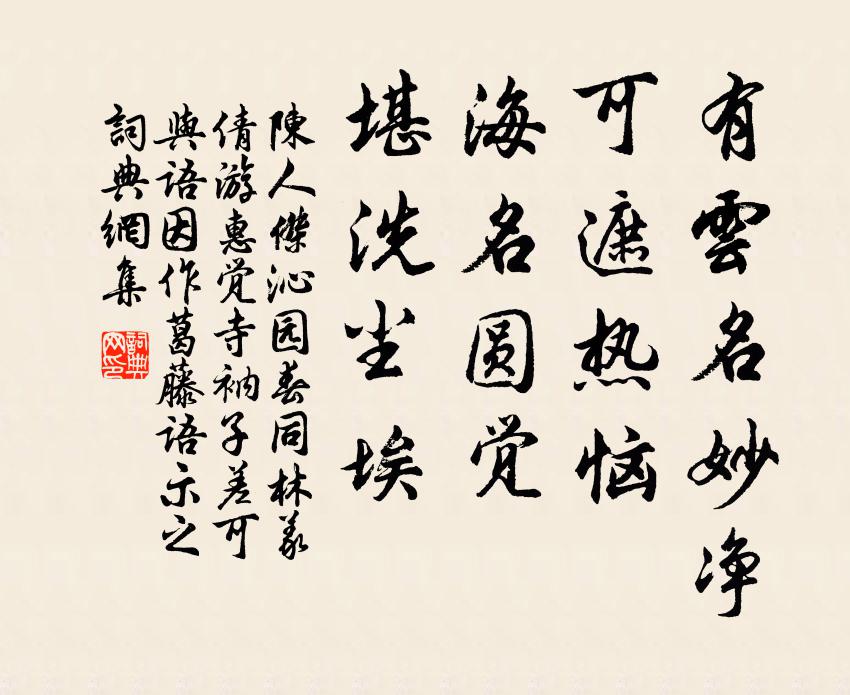 有雲名妙净
可遮热恼
海名圆觉
堪洗尘埃
陳人傑沁园春同林義
倩游惠觉寺衲子差可
與语因作葛藤语示之
詞典網集
詞典
网印